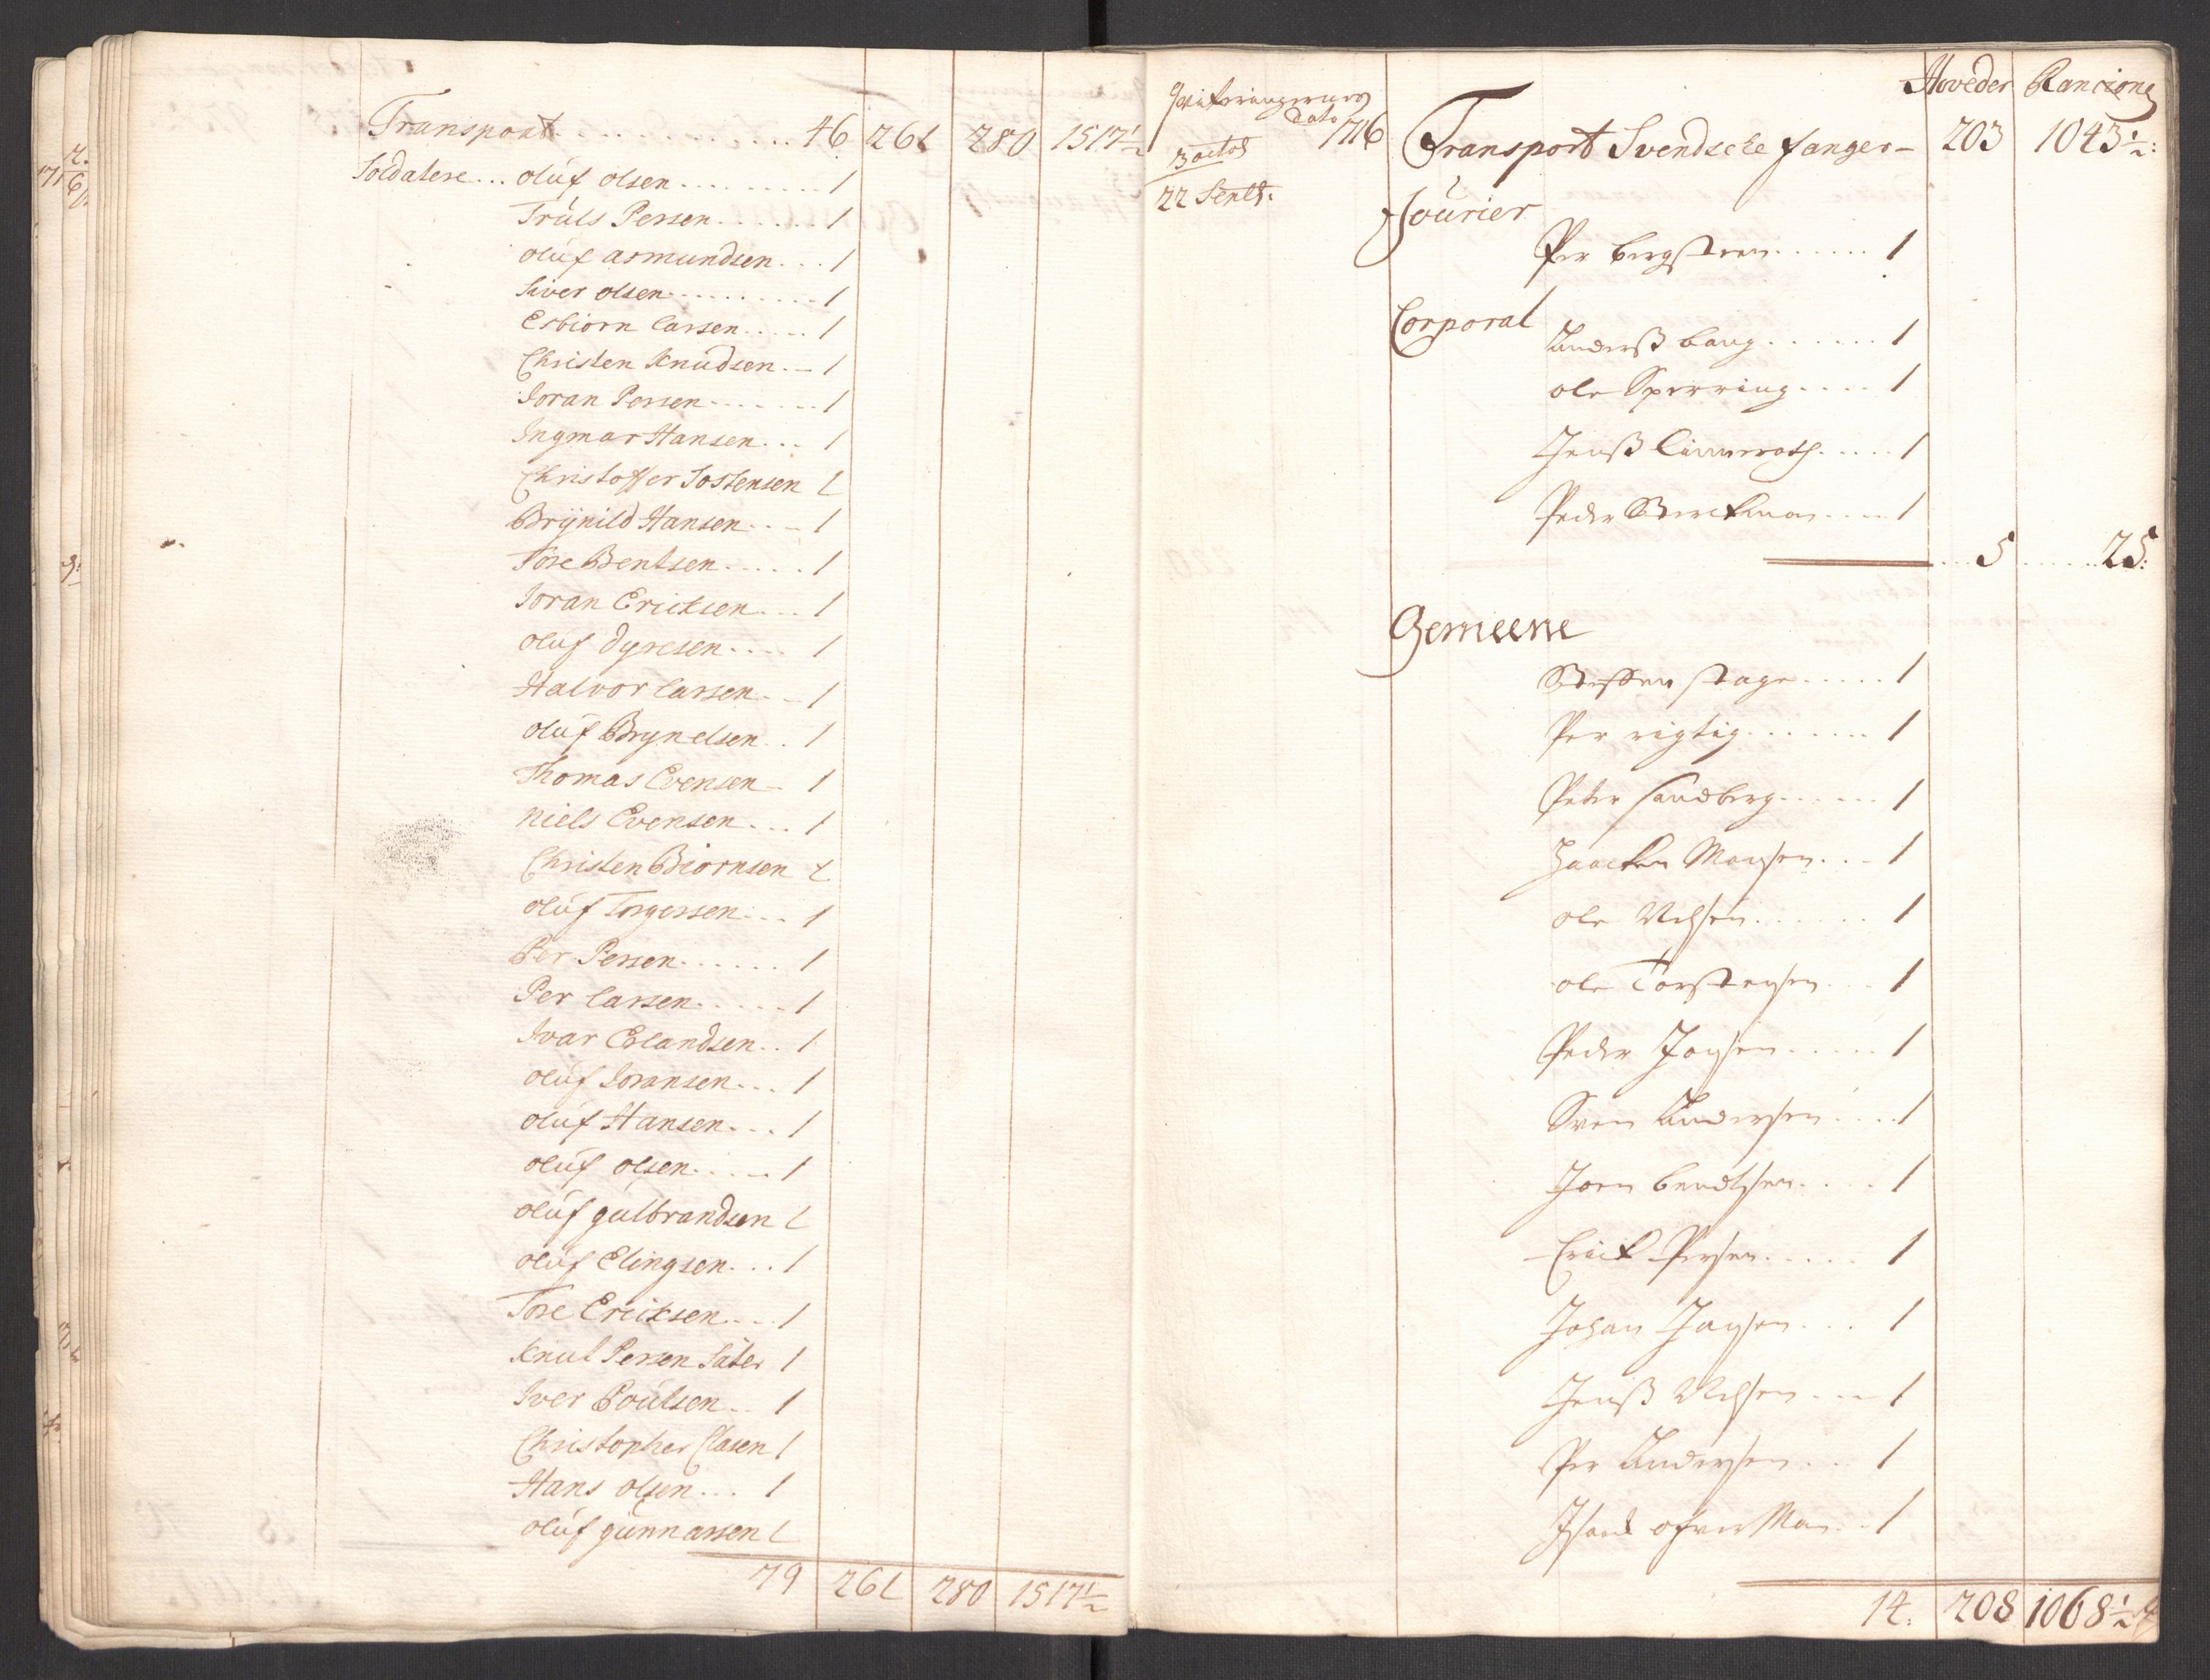 Transport . . . . . . . . . . 46 261 280 1517½
Soldatere... oluf olsen . . . . . . . . . 1
Truls Persen . . . . . . 1
oluf asmundsen . . . 1
Siver olsen . . . . . . . . . 1
Esbiorn Larsen . . . . . 1
Christen Knudsen . – 1
Joran Persen . . . . . . . 1
Ingmar Hansen . . . 1
Christoffer Tostensen 1
Brÿnild Hansen . . – 1
Tore Bentsen . . . . . 1
Joran Ericksen . . . 1
oluf dyresen . . . . 1
Halvor Larsen . – 1
oluf Brynelsen . . 1
Thomas Evensen – 1
Niels Evensen . . . 1
Christen Biörnsen 1
oluf Torgersen . . . 1
Per Persen . . . . . . 1
Per Larsen . . . . . 1
Ivar Erlandsen . . 1
oluf Joransen . . . 1
oluf Hansen . . . 1
oluf olsen . . . . . 1
oluf gulbrandsen 1
oluf Elingsen . . . 1
Tore Ericksen . . . . 1
Knut Persen Säter 1
Iver Poulsen . . 1
Christopher Clasen 1
Hans olsen . . . 1
oluf gunnarsen 1
79 261 280 1517½
Hoveder Rancions
Dato 1716
3 octob
22 Septb.
Transport Svendsche fanger – 203 1043½:
Fourier
Per bergsteen . . . . . . 1
Corporal
Anderß bang . . . . . . 1
ole Sperring . . . . 1
Jenß Limmeroth . . . . . 1
Peder . . . . 1
. . . 5 . . . . . . 25:
Gemeene
Steffen stage . . . . . 1
Per rigtig . . . . . . . 1
Peter sandberg . . . . . . 1
Haacken Monsen . . . 1
ole Nilsen . . . . . . 1
ole Torstensen . . . 1
Peder Jonsen . . . . . 1
Sven Andersen . . . . 1
Joen bendtsen . . . . 1
Erick Persen . . . . . 1
Johan Jonsen . . . 1
Jenß Nilsen . . . 1
Per Andersen . . . 1
Isack ofverman . . 1
14. 208 1068½